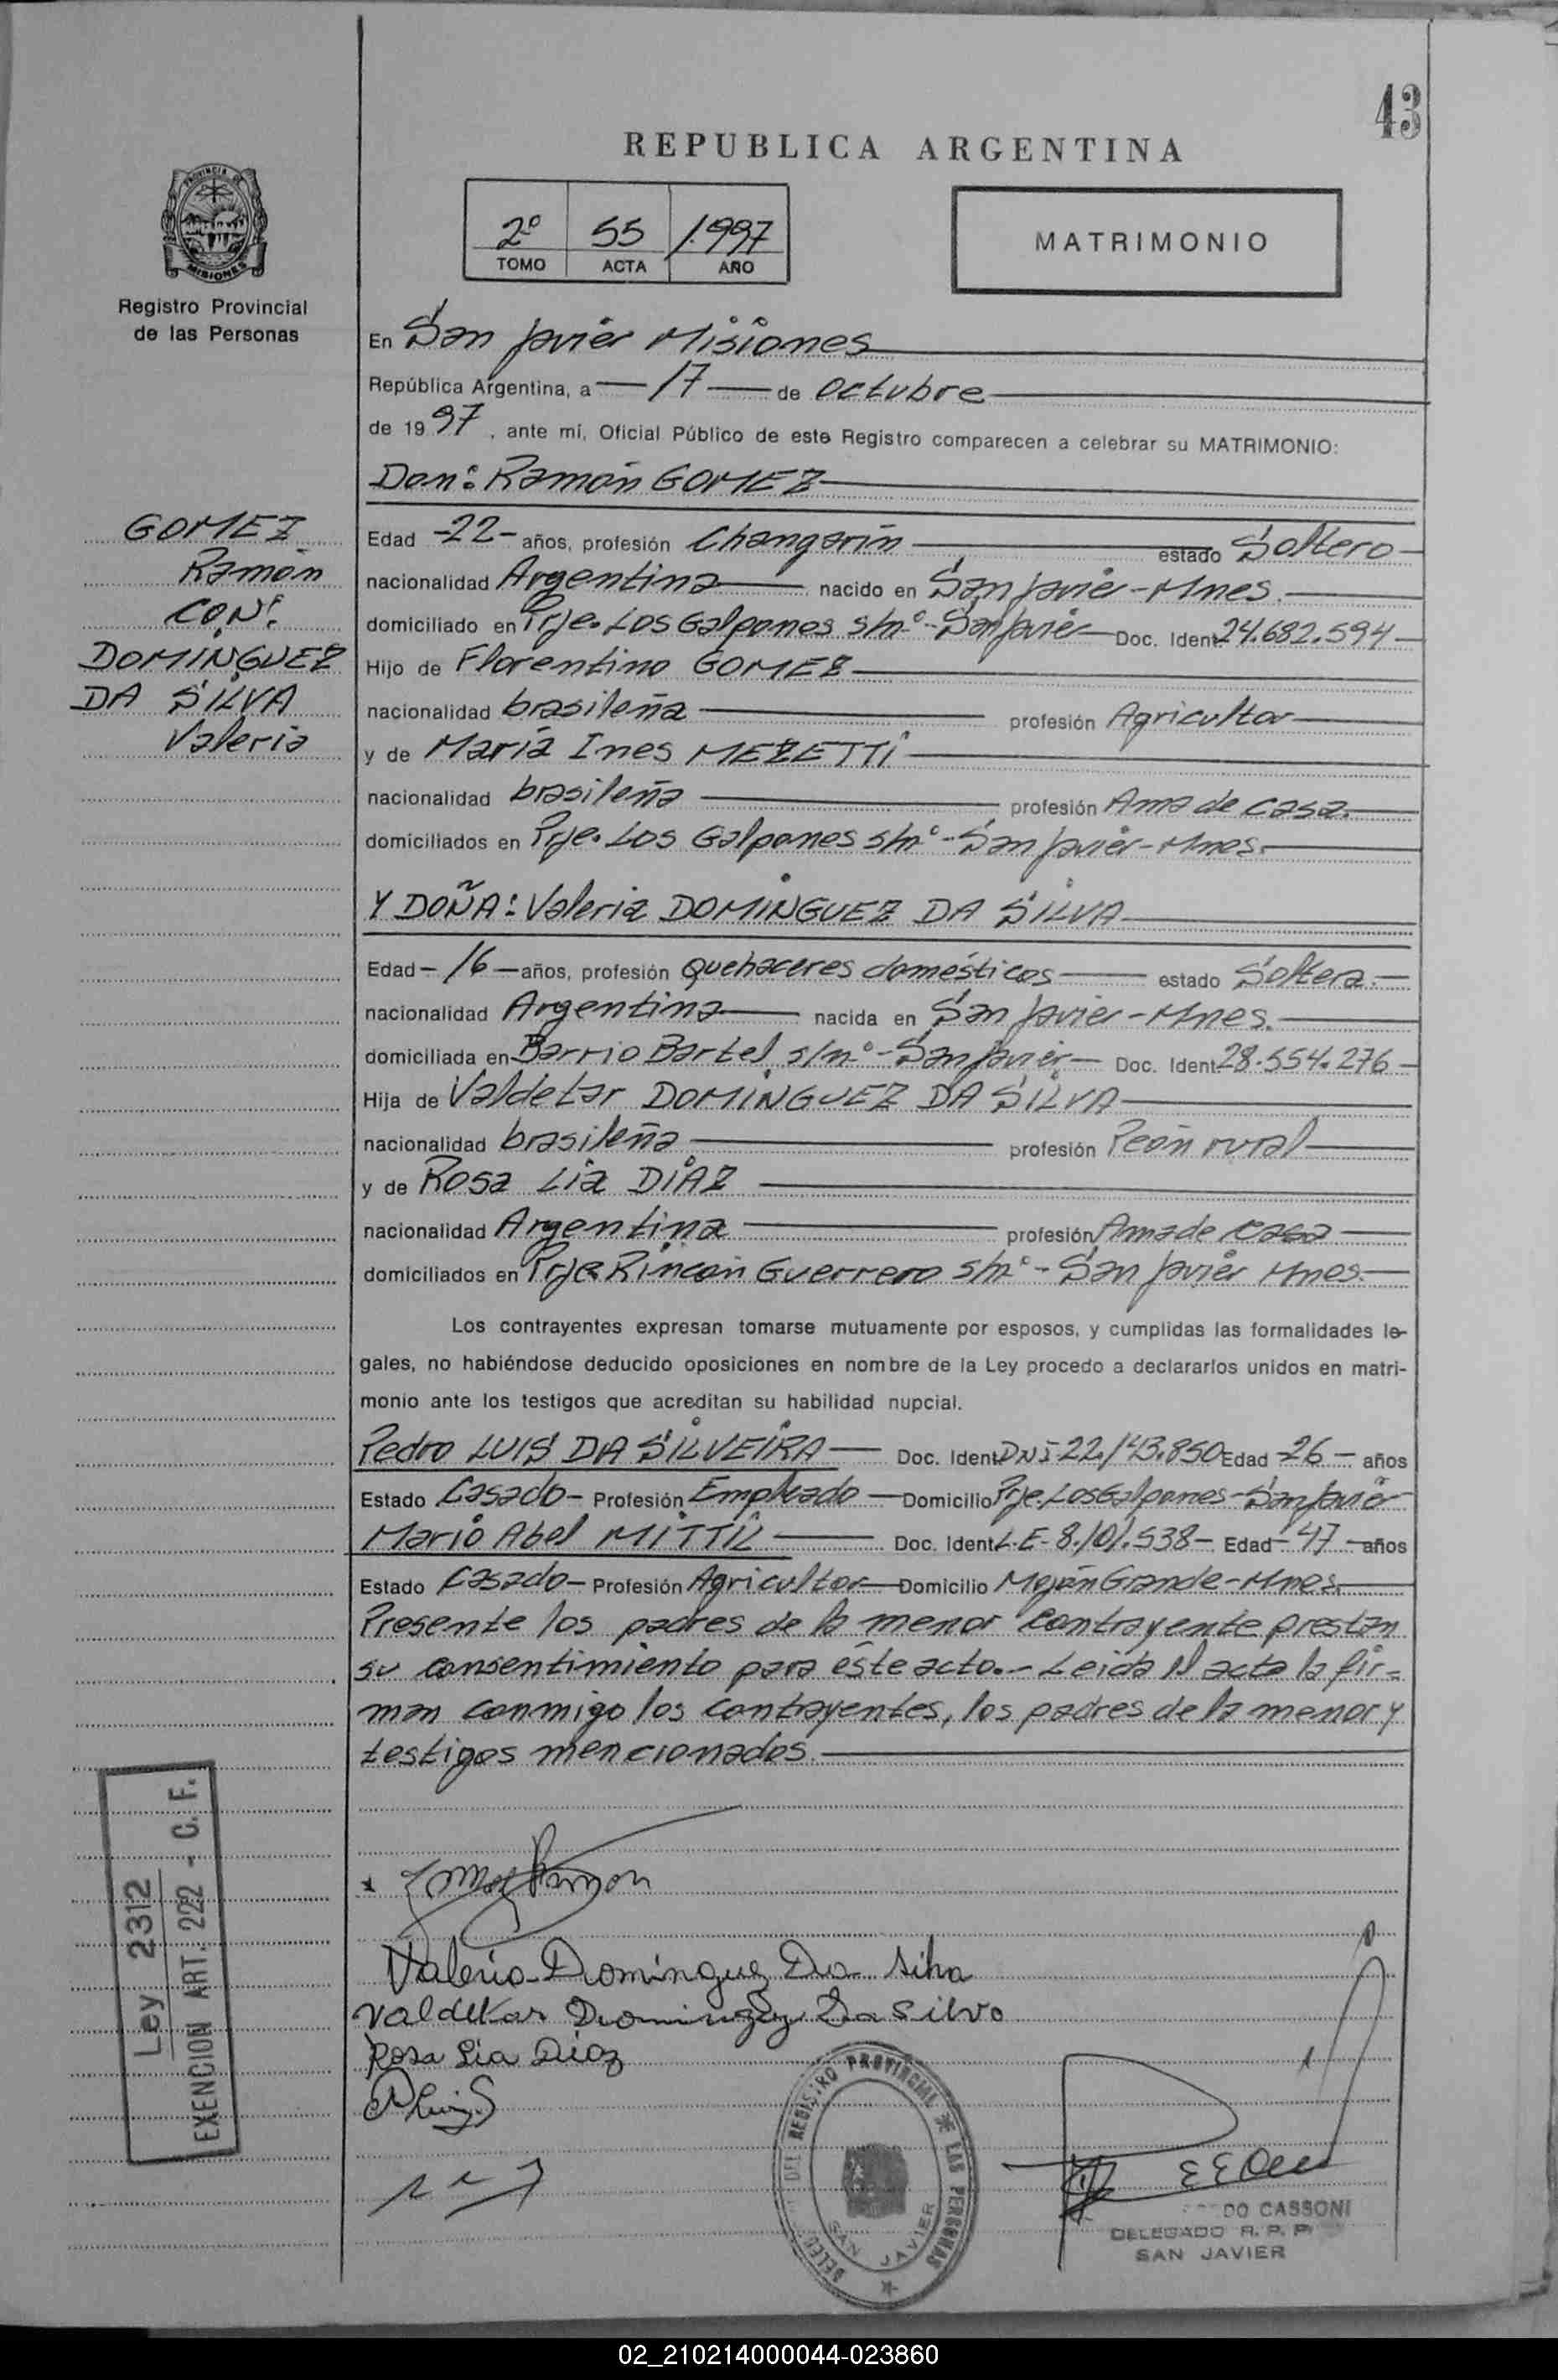 43
REPUBLICA ARGENTINA
PROVINCIA DE
MISIONES
Registro Provincial
de las Personas
2º 55 1.997
TOMO ACTA AÑO
MATRIMONIO
En San Javier Misiones
República Argentina, a 17 de octubre
de 1997, ante mí, Oficial Público de este Registro comparecen a celebrar su MATRIMONIO:
Don: Ramón GOMEZ
GOMEZ
Ramón
CON:
DOMINGUEZ
DA SILVA
Valeria
Edad -22- años, profesión Changarín estado Soltero
nacionalidad Argentina nacido en San Javier-Mnes.
domiciliado en Prje. Los Galpones s/nº-San Javier Doc. Ident. 24.682.594
Hijo de Florentino GOMEZ
nacionalidad brasileña profesión Agricultor
y de María Ines MEZETTI
nacionalidad brasileña profesión Ama de casa.
domiciliados en Prje. Los Galpones s/nº-San Javier-Mnes.
Y DOÑA: Valeria DOMINGUEZ DA SILVA
Edad -16- años, profesión Quehaceres domésticos estado Soltera.
nacionalidad Argentina nacida en San Javier-Mnes.
domiciliada en Barrio Bartel s/nº-San Javier Doc. Ident. 28.554.276
Hija de Valdetar DOMINGUEZ DA SILVA
nacionalidad brasileña profesión Peón rural
y de Rosa Lía DIAZ
nacionalidad Argentina profesión Ama de casa
domiciliados en Prje Rincón Guerrero s/nº-San Javier Mnes.
Los contrayentes expresan tomarse mutuamente por esposos, y cumplidas las formalidades le-
gales, no habiéndose deducido oposiciones en nombre de la Ley procedo a declararlos unidos en matri-
monio ante los testigos que acreditan su habilidad nupcial.
Pedro LUIS DA SILVEIRA Doc. Ident. DNI-22.143.850 Edad -26- años
Estado Casado- Profesión Empleado Domicilio Prje. Los Galpones-San Javier
Mario Abel MITTIL Doc. Ident. L.E-8.101.538- Edad -47- años
Estado Casado- Profesión Agricultor Domicilio Mojón Grande-Mnes.
Presente los padres de la menor contrayente prestan
su consentimiento para éste acto.- Leída el acta la fir=
man conmigo los contrayentes, los padres de la menor y
testigos mencionados.
Ley 2312
EXENCION ART. 222 - C. F.
Gomez Ramon
Valeria Dominguez Da Silva
Valdetar Dominguez Da Silva
Rosa Lia Diaz
REGISTRO PROVINCIAL DE LAS PERSONAS
SAN JAVIER
DO CASSONI
DELEGADO R. P. P.
SAN JAVIER
02_210214000044-023860